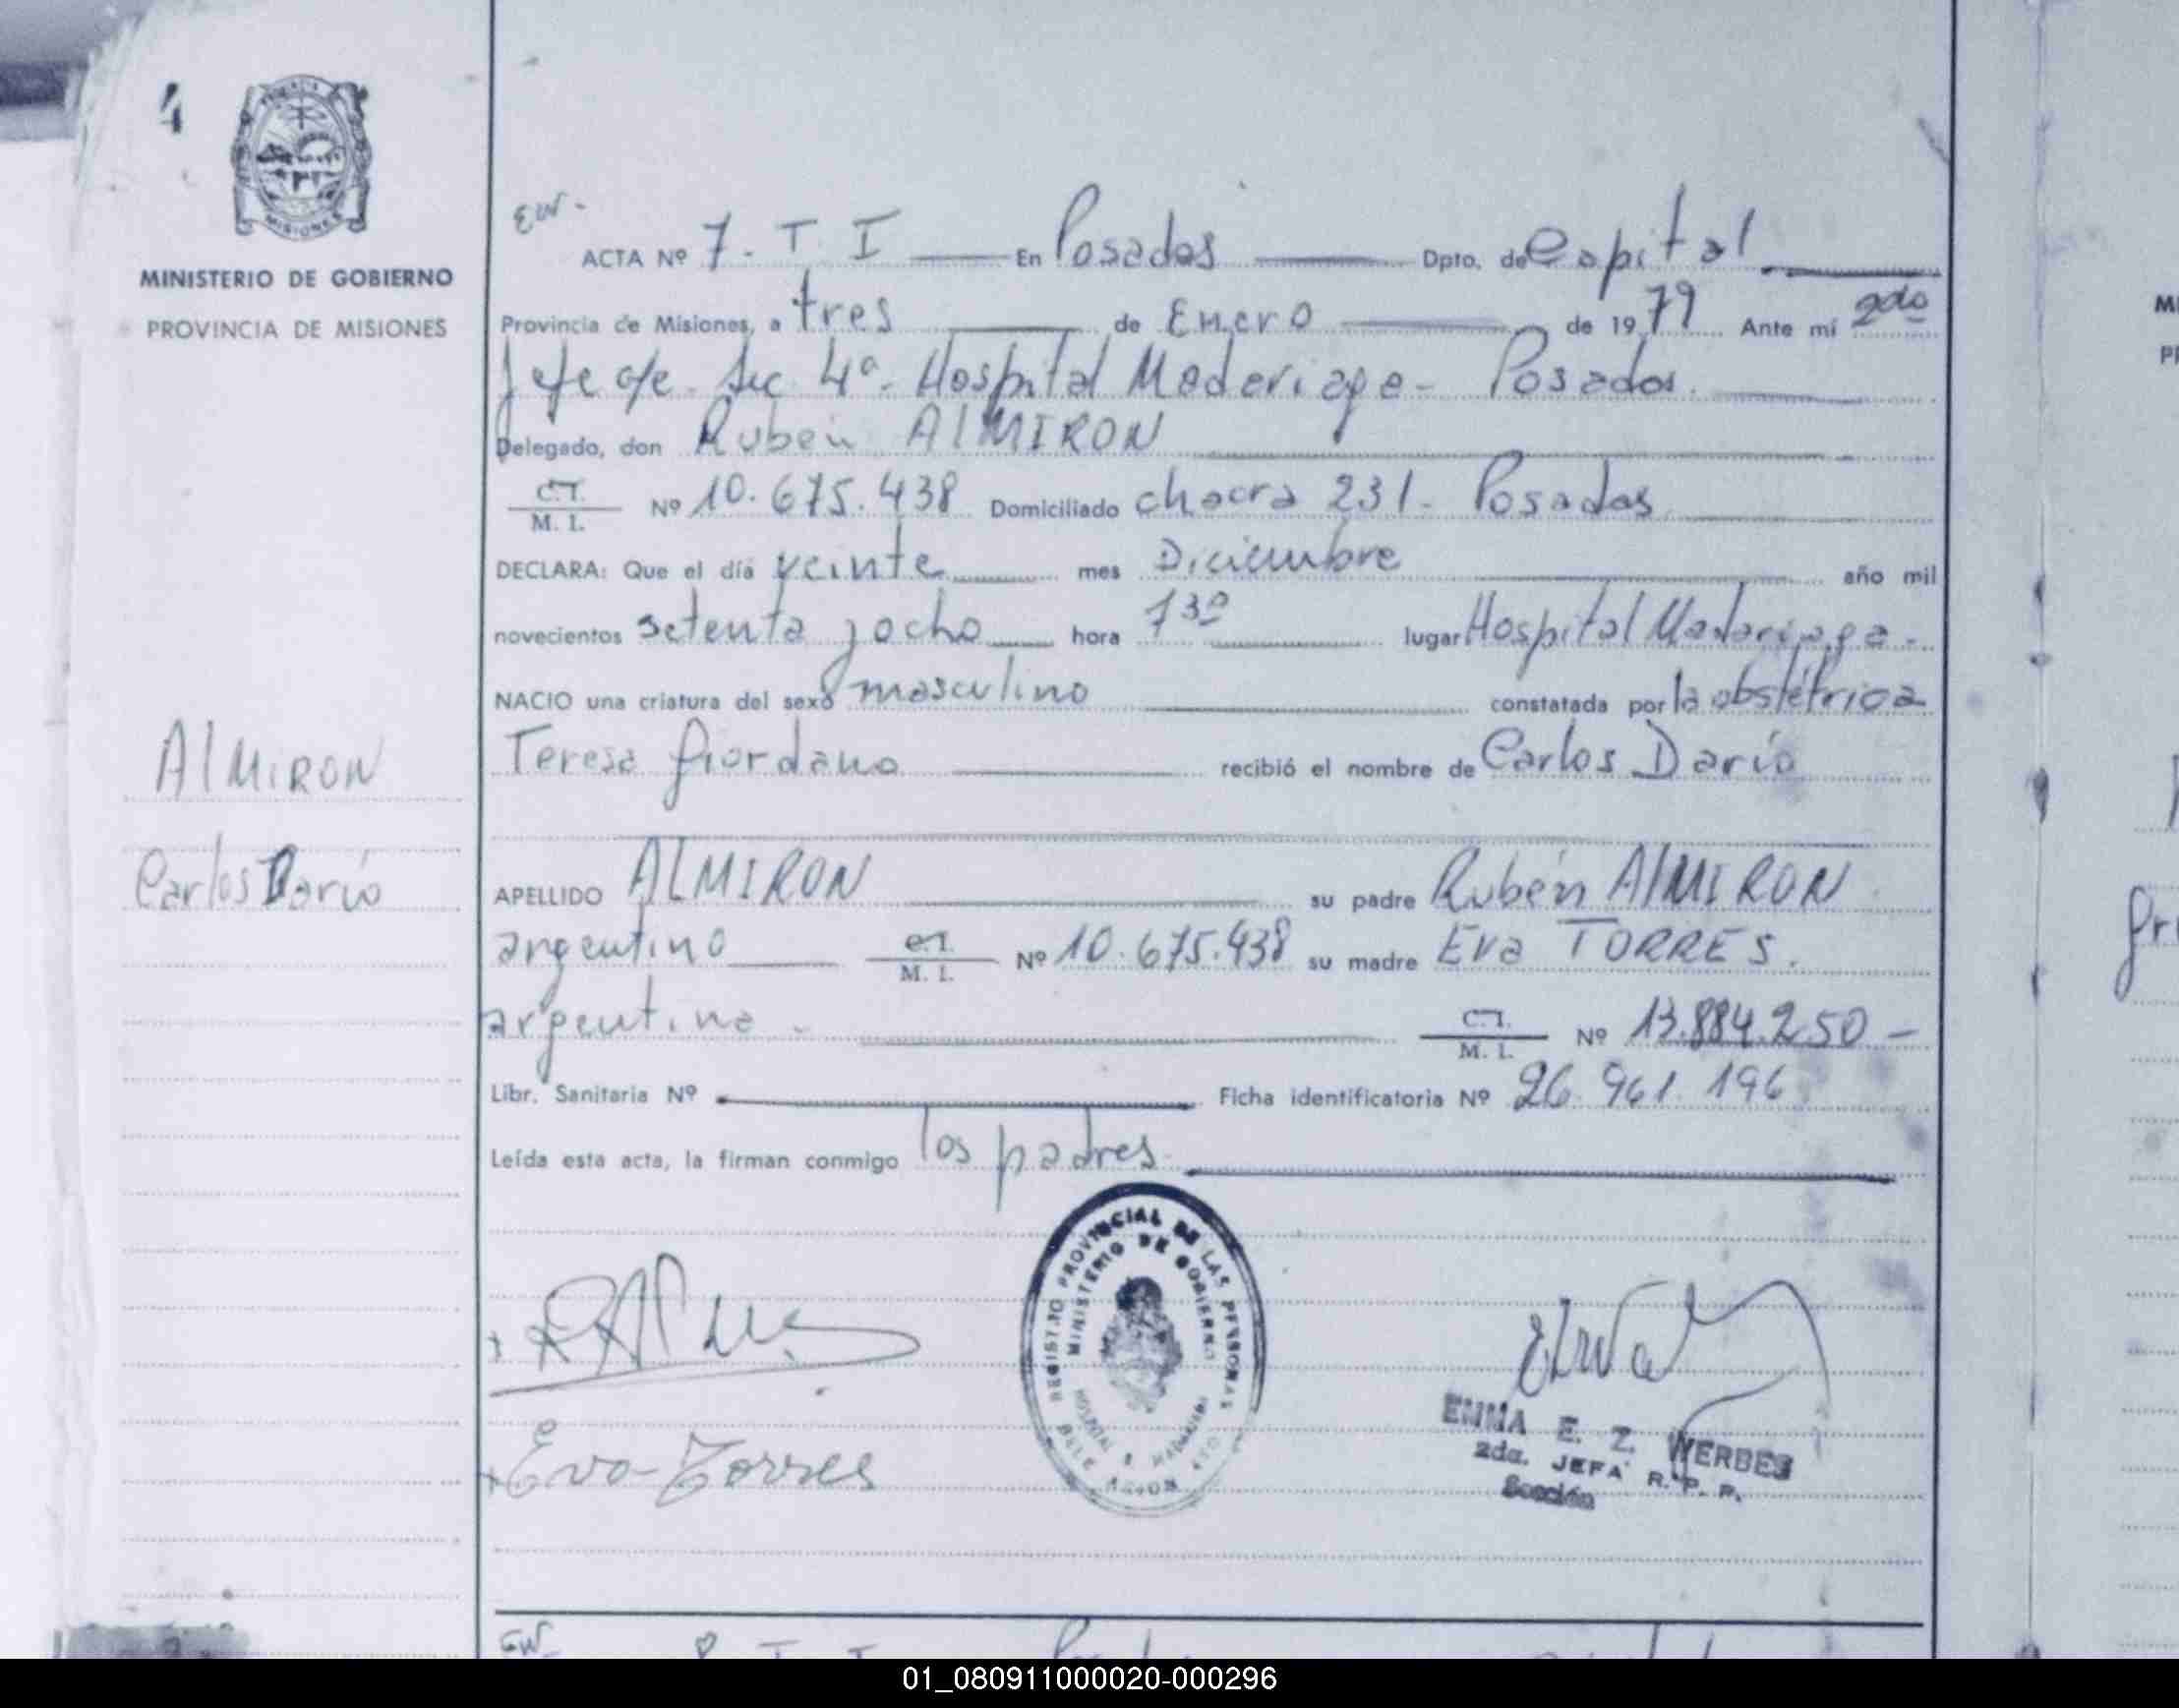 4
MISIONES
MINISTERIO DE GOBIERNO
PROVINCIA DE MISIONES
EW-
ACTA Nº 7 - T. I En Posadas Dpto. de Capital
Provincia de Misiones, a tres de Enero de 1979 Ante mí 2do
Jefe de Sec 4ª Hospital Madariaga - Posadas
Delegado, don Rubén AlMIRON
C.I.
M. I. Nº 10.675.438 Domiciliado chacra 231 - Posadas
DECLARA: Que el día veinte mes Diciembre año mil
novecientos setenta y ocho hora 7 30 lugar Hospital Madariaga -
NACIO una criatura del sexo masculino constatada por la obstétrica
Teresa Giordano recibió el nombre de Carlos Darío
AlMIRON
Carlos Darío
APELLIDO ALMIRON su padre Rubén AlMIRON
argentino C.I. M. I. Nº 10.675.438 su madre Eva TORRES.
argentina - C.I. M. I. Nº 13.884.250 -
Libr. Sanitaria Nº Ficha identificatoria Nº 26.961.196
Leída esta acta, la firman conmigo los padres
REGISTRO PROVINCIAL DE LAS PERSONAS
MINISTERIO DE GOBIERNO
Eva Torres
EMMA E. Z. WERBES
2da. JEFA R. P. P.
Sección
EW-
01_080911000020-000296